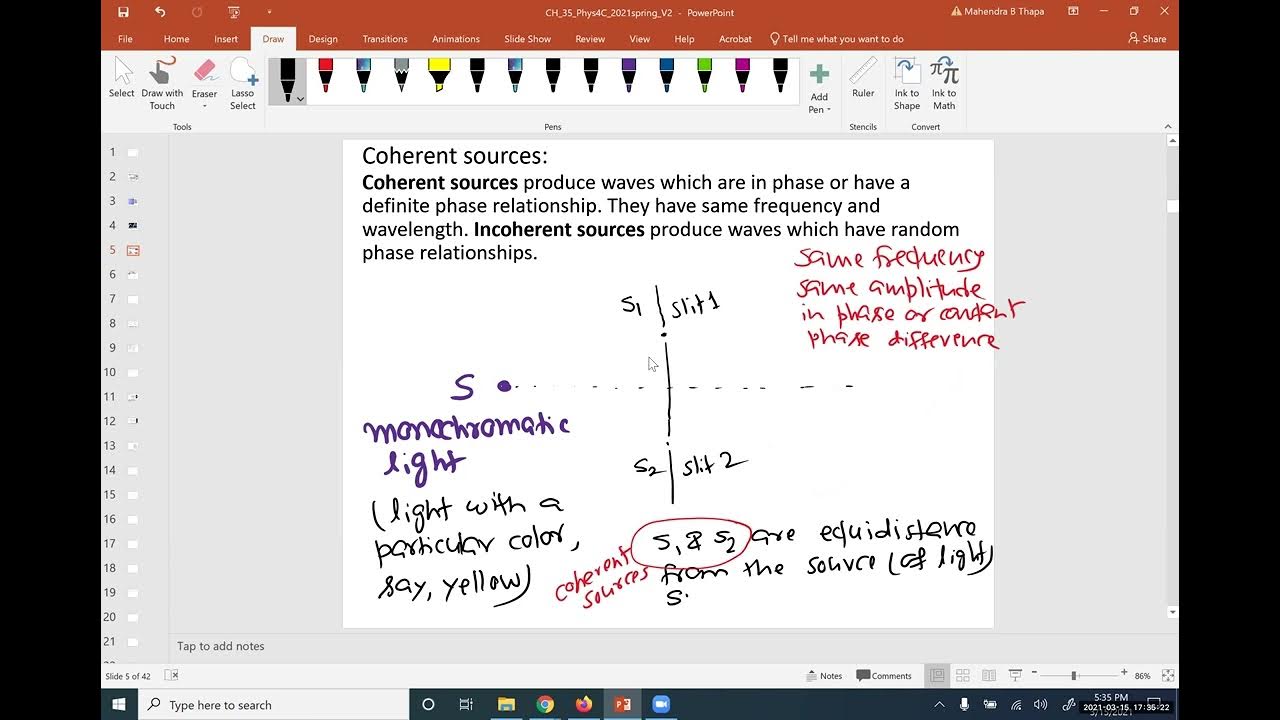 CH_35_Phys4C_2021spring_V2 - PowerPoint
Mahendra B Thapa
File Home Insert Draw Design Transitions Animations Slide Show Review View Help Acrobat Tell me what you want to do
Share
Select
Draw with Touch
Eraser
Lasso Select
Add Pen
Ruler
Ink to Shape
Ink to Math
Tools
Pens
Stencils
Convert
1
2
3
4
5
6
7
8
9
10
11
12
13
14
15
16
17
18
19
20
21
Coherent sources:
Coherent sources produce waves which are in phase or have a
definite phase relationship. They have same frequency and
wavelength. Incoherent sources produce waves which have random
phase relationships.
same frequency
same amplitude
in phase or content
phase difference
S1 slit 1
S
monochromatic
light
S2 slit 2
(light with a
particular color,
say, yellow)
S1 & S2 are equidistance
from the source (of light)
S.
coherent
sources
Tap to add notes
Slide 5 of 42
Notes
Comments
86%
Type here to search
5:35 PM
2021-03-15 17:35:22